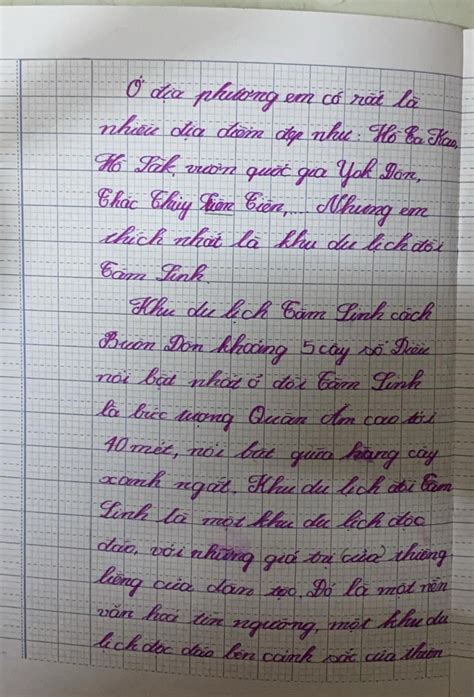 Ở địa phương em có rất là
nhiều địa điểm đẹp như: Hồ Ea Kao,
Hồ Lắk, vườn quốc gia Yok Đôn,
Thác Thủy Tiên,... Nhưng em
thích nhất là khu du lịch đồi
Tâm Linh.
Khu du lịch Tâm Linh cách
Buôn Đôn khoảng 5 cây số. Điều
nổi bật nhất ở đồi Tâm Linh
là bức tượng Quan Âm cao tới
40 mét, nổi bật giữa hàng cây
xanh ngát. Khu du lịch đồi Tâm
Linh là một khu du lịch độc
đáo, với những giá trị (của) thiêng
liêng của dân tộc. Đó là một nền
văn hoá tín ngưỡng, một khu du
lịch độc đáo bên cảnh sắc của thiên